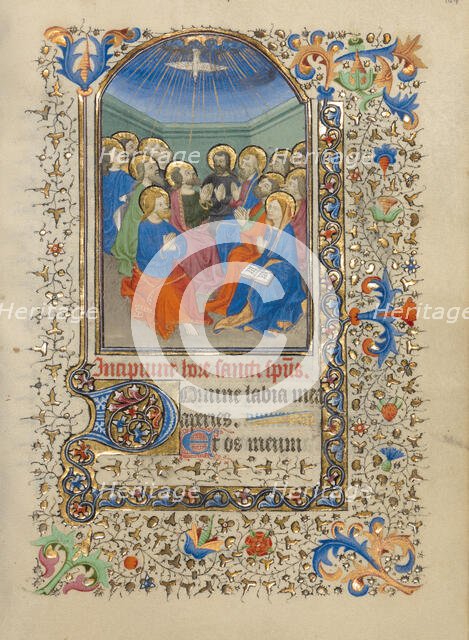 Heritage Heritage
Heritage Heritage Heritage
Incipiunt hore sancti spūs.
Domine labia mea
aperies.
Et os meum
Heritage Heritage